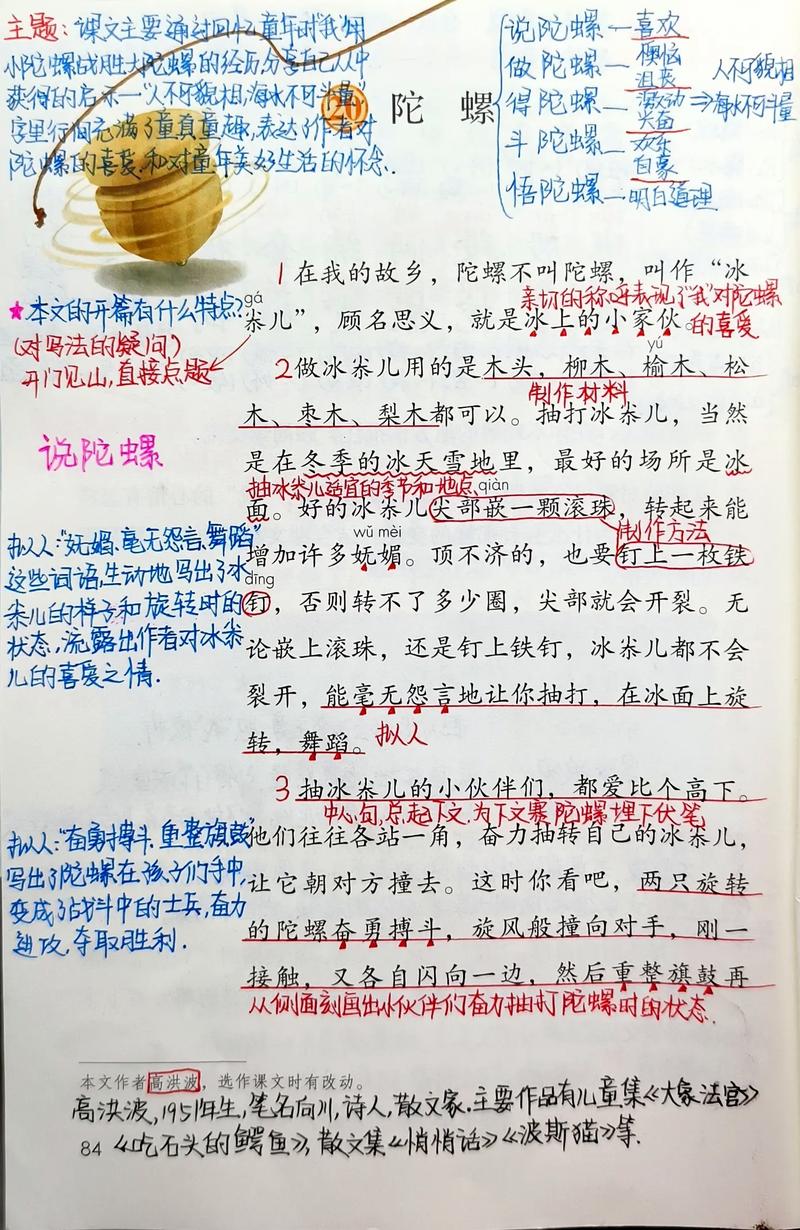 主题：课文主要通过回忆童年时"我"用
小陀螺战胜大陀螺的经历分享自己从中
获得的启示—"人不可貌相,海水不可斗量"
字里行间充满了童真童趣,表达了作者对
陀螺的喜爱和对童年美好生活的怀念.
20 陀 螺
说陀螺—喜欢
做陀螺—懊恼
沮丧
得陀螺—激动
兴奋
斗陀螺—欢乐
自豪
悟陀螺—明白道理
⇒人不可貌相
海水不可斗量
1在我的故乡，陀螺不叫陀螺，叫作“冰
亲切的称呼表现了"我"对陀螺
的喜爱
gá
尜儿”，顾名思义，就是冰上的小家伙。
★本文的开篇有什么特点?
(对写法的疑问)
开门见山,直接点题
yú
2做冰尜儿用的是木头，柳木、榆木、松
制作材料
木、枣木、梨木都可以。抽打冰尜儿，当然
说陀螺
是在冬季的冰天雪地里，最好的场所是冰
抽冰尜儿适宜的季节和地点
qiàn
面。好的冰尜儿尖部嵌一颗滚珠，转起来能
制作方法
wǔ mèi
增加许多妩媚。顶不济的，也要钉上一枚铁
dīng
钉，否则转不了多少圈，尖部就会开裂。无
论嵌上滚珠，还是钉上铁钉，冰尜儿都不会
裂开，能毫无怨言地让你抽打，在冰面上旋
转，舞蹈。
拟人
拟人:"妩媚、毫无怨言、舞蹈"
这些词语,生动地写出了冰
尜儿的样子和旋转时的
状态,流露出作者对冰尜
儿的喜爱之情.
3抽冰尜儿的小伙伴们，都爱比个高下。
中心句,总起下文,为下文赛陀螺埋下伏笔
他们往往各站一角，奋力抽转自己的冰尜儿，
让它朝对方撞去。这时你看吧，两只旋转
的陀螺奋勇搏斗，旋风般撞向对手，刚一
接触，又各自闪向一边，然后重整旗鼓再
从侧面刻画出小伙伴们奋力抽打陀螺时的状态.
拟人:"奋勇搏斗、重整旗鼓"
写出了陀螺在孩子们手中,
变成了战斗中的士兵,奋力
进攻,夺取胜利.
本文作者高洪波，选作课文时有改动。
高洪波,1951年生,笔名向川,诗人,散文家.主要作品有儿童集《大象法官》
84 《吃石头的鳄鱼》,散文集《悄悄话》《波斯猫》等.